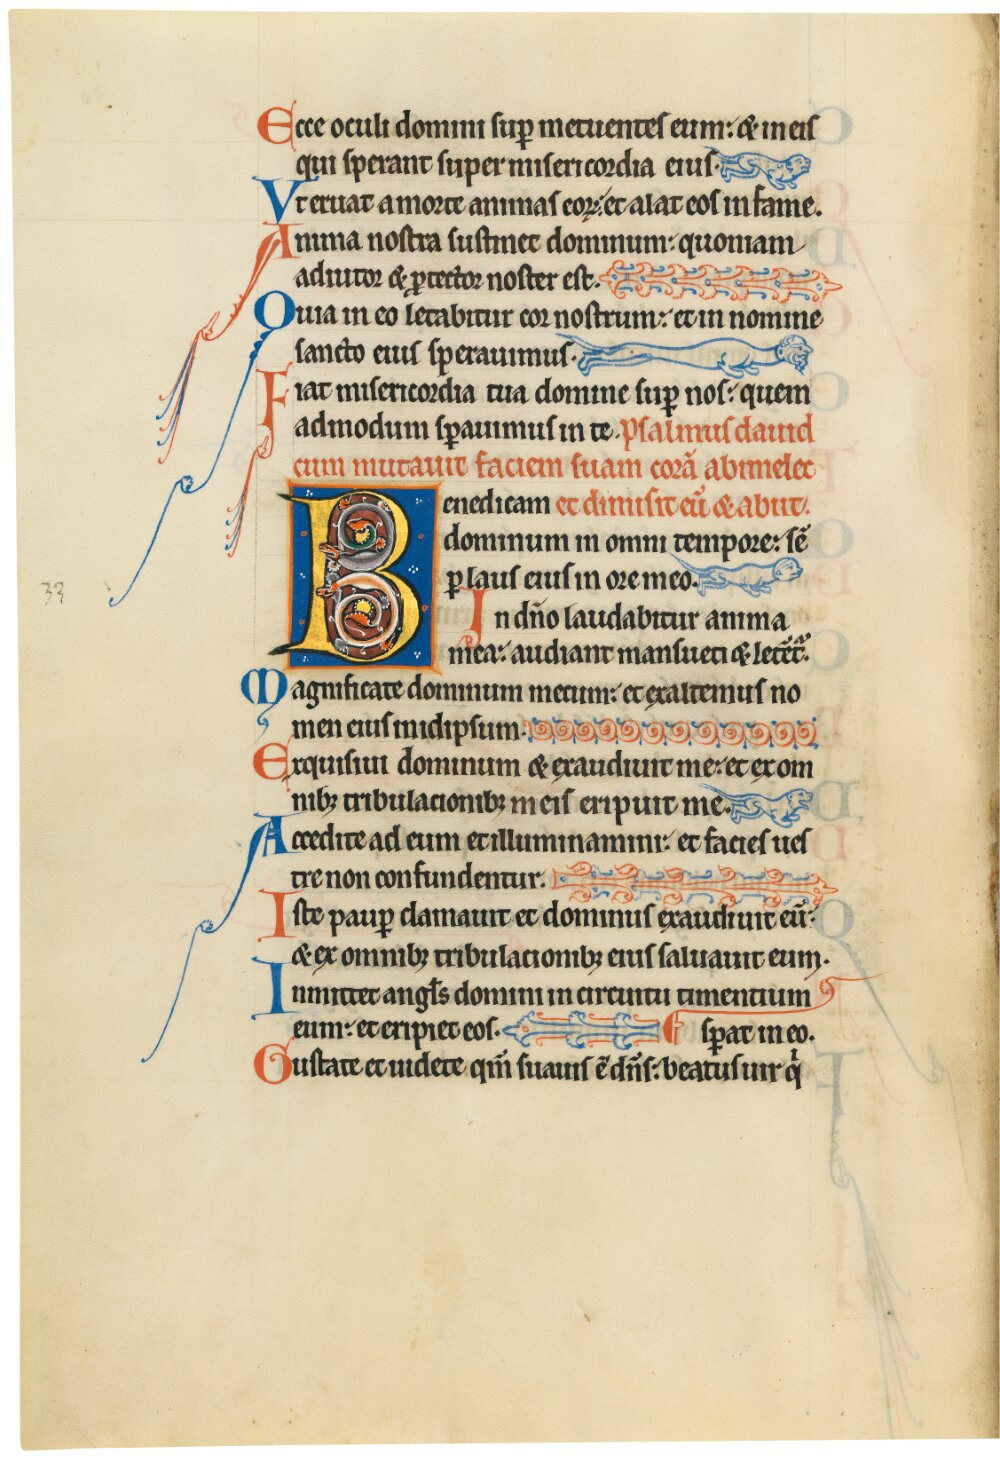 Ecce oculi domini sup̱ metuentes eum: & in eis
qui sperant super misericordia eius.
Vt eruat a morte animas eoꝝ: et alat eos in fame.
Anima nostra sustinet dominum: quoniam
adiutor & ꝓtector noster est.
Quia in eo letabitur cor nostrum: et in nomine
sancto eius sperauimus.
Fiat misericordia tua domine suꝑ nos: quem
admodum sꝑauimus in te. Psalmus dauid
cum mutauit faciem suam corā abimelec
Benedicam et dimisit eū & abiit.
dominum in omni tempore: sē
ꝑ laus eius in ore meo.
In dño laudabitur anima
mea: audiant mansueti & letēt͛.
Magnificate dominum mecum: et exaltemus no
men eius in idipsum.
Exquisiui dominum & exaudiuit me: et ex om
nibꝫ tribulationibꝫ meis eripuit me.
Accedite ad eum et illuminamini: et facies ues
tre non confundentur.
Iste pauꝑ clamauit et dominus exaudiuit eū:
& ex omnibꝫ tribulationibꝫ eius saluauit eum.
Inmittet angl̃s domini in circuitu timentium
eum: et eripiet eos. sꝑat in eo.
Gustate et uidete qm̃ suauis ē dñs: beatus uir qͥ
33